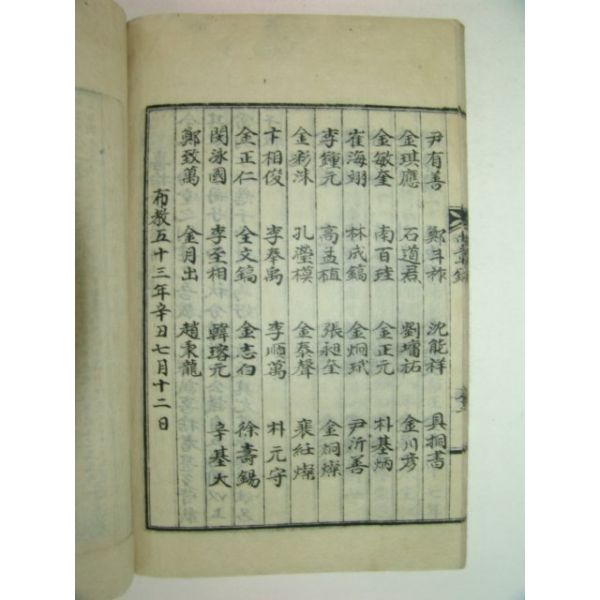 尹有善 鄭斗祚 沈能祥 具桐書
金琪應 石道君 劉墉祐 金川彦
金敏奎 南百珪 金正元 朴基炳
崔海翊 林成鎬 金炯斌 尹沂善
李鍾元 高孟植 張昶奎 金炯燦
金彩洙 孔瀅模 金泰聲 裵紅燦
卞相俊 李奉禹 李順萬 朴元守
金正仁 全文鎬 金志伯 徐壽錫
閔泳國 李至相 韓瑢元 辛基大
鄭致萬 金月出 趙東龍
布教五十三年辛丑七月十二日